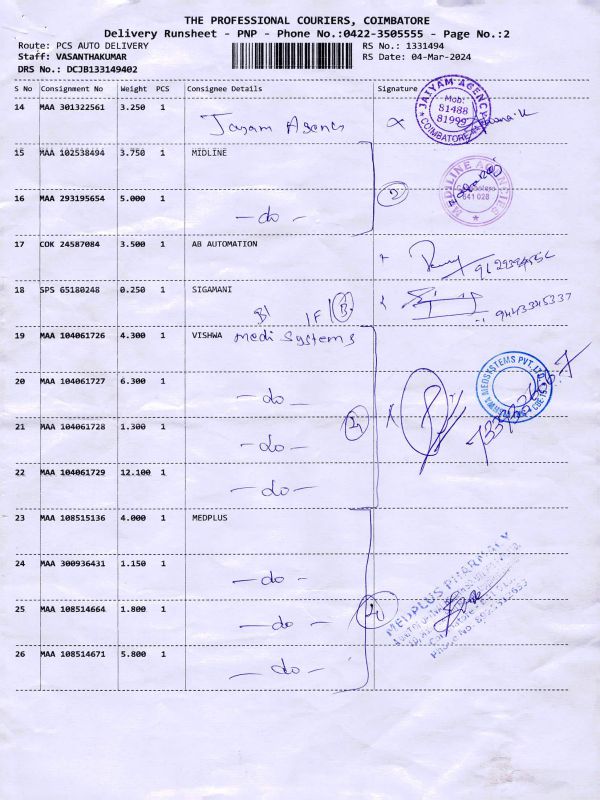 THE PROFESSIONAL COURIERS, COIMBATORE
Delivery Runsheet - PNP - Phone No.:0422-3505555 - Page No.:2
Route: PCS AUTO DELIVERY
RS No.: 1331494
Staff: VASANTHAKUMAR
RS Date: 04-Mar-2024
DRS No.: DCJB133149402
S No Consignment No Weight PCS Consignee Details Signature
14 MAA 301322561 3.250 1 Jayam Agency
JAIYAM AGENCY
Mob:
81488
81999
COIMBATORE
15 MAA 102538494 3.750 1 MIDLINE
MEDILINE AGENCIES
641 028
16 MAA 293195654 5.000 1 -do-
2
17 COK 24587084 3.500 1 AB AUTOMATION
18 SPS 65180248 0.250 1 SIGAMANI
9443345337
B1 1F1 B
19 MAA 104061726 4.300 1 VISHWA medi Systems
MEDSYSTEMS PVT. LTD.
20 MAA 104061727 6.300 1 -do-
21 MAA 104061728 1.300 1 -do-
22 MAA 104061729 12.100 1 -do-
23 MAA 108515136 4.000 1 MEDPLUS
MEDPLUS PHARMACY
24 MAA 300936431 1.150 1 -do-
25 MAA 108514664 1.800 1 -do-
Coimbatore
Phone No:
26 MAA 108514671 5.800 1 -do-